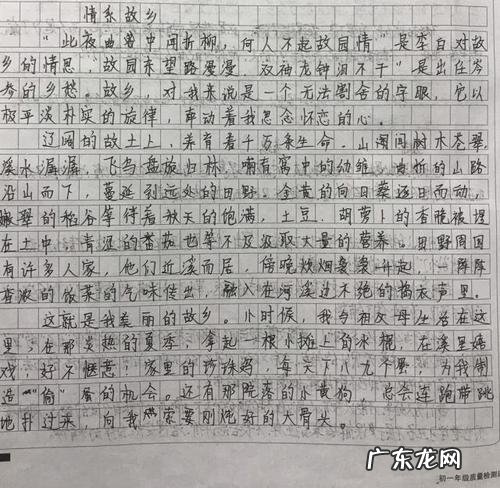 情系故乡
"此夜曲中闻折柳,何人不起故园情"是李白对故
乡的情思,"故园东望路漫漫,双袖龙钟泪不干"是出任岑
参的乡愁。故乡,对我来说是一个无法割舍的字眼,它以
极平淡朴实的旋律,牵动着我思念怀恋的心。
辽阔的故土上,养育着千万条生命。山间树木苍翠,
溪水潺潺,飞鸟盘旋归林,哺育窝中的幼雏。曲折的山路
沿山而下,蔓延到远处的田野。金黄的向日葵逐日而动,
嫩翠的稻谷等待着秋天的饱满,土豆、胡萝卜的香晚被埋
在土中,青涩的番茄也等不及汲取大量的营养。田野周围
有许多人家,他们近溪而居,傍晚炊烟袅袅升起,一阵阵
香浓的饭菜的气味传出,融入在河溪边不绝的捣衣声里。
这就是我美丽的故乡。小时候,我与祖父母生活在这
里,在那炎热的夏季,拿起一根小摊上的冰棍,在溪里嬉
戏,好不惬意!家里的珍珠鸡,每天下八九个蛋,为我制
造"偷"蛋的机会。还有那院落的小黄狗,总会连跑带跳
地扑过来,向我索要刚炖好的大骨头。
初一年级质量检测
广东龙网